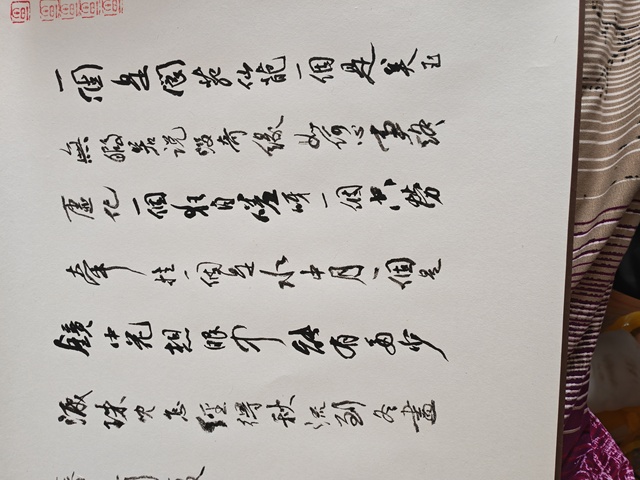 一個是閬苑仙葩一個是美玉
無瑕若说沒奇缘如何心事終
虛化一個枉自嗟呀一個空勞
牽掛一個是水中月一個是
鏡中花想眼中能有多少
淚珠兒怎經得秋流到冬盡